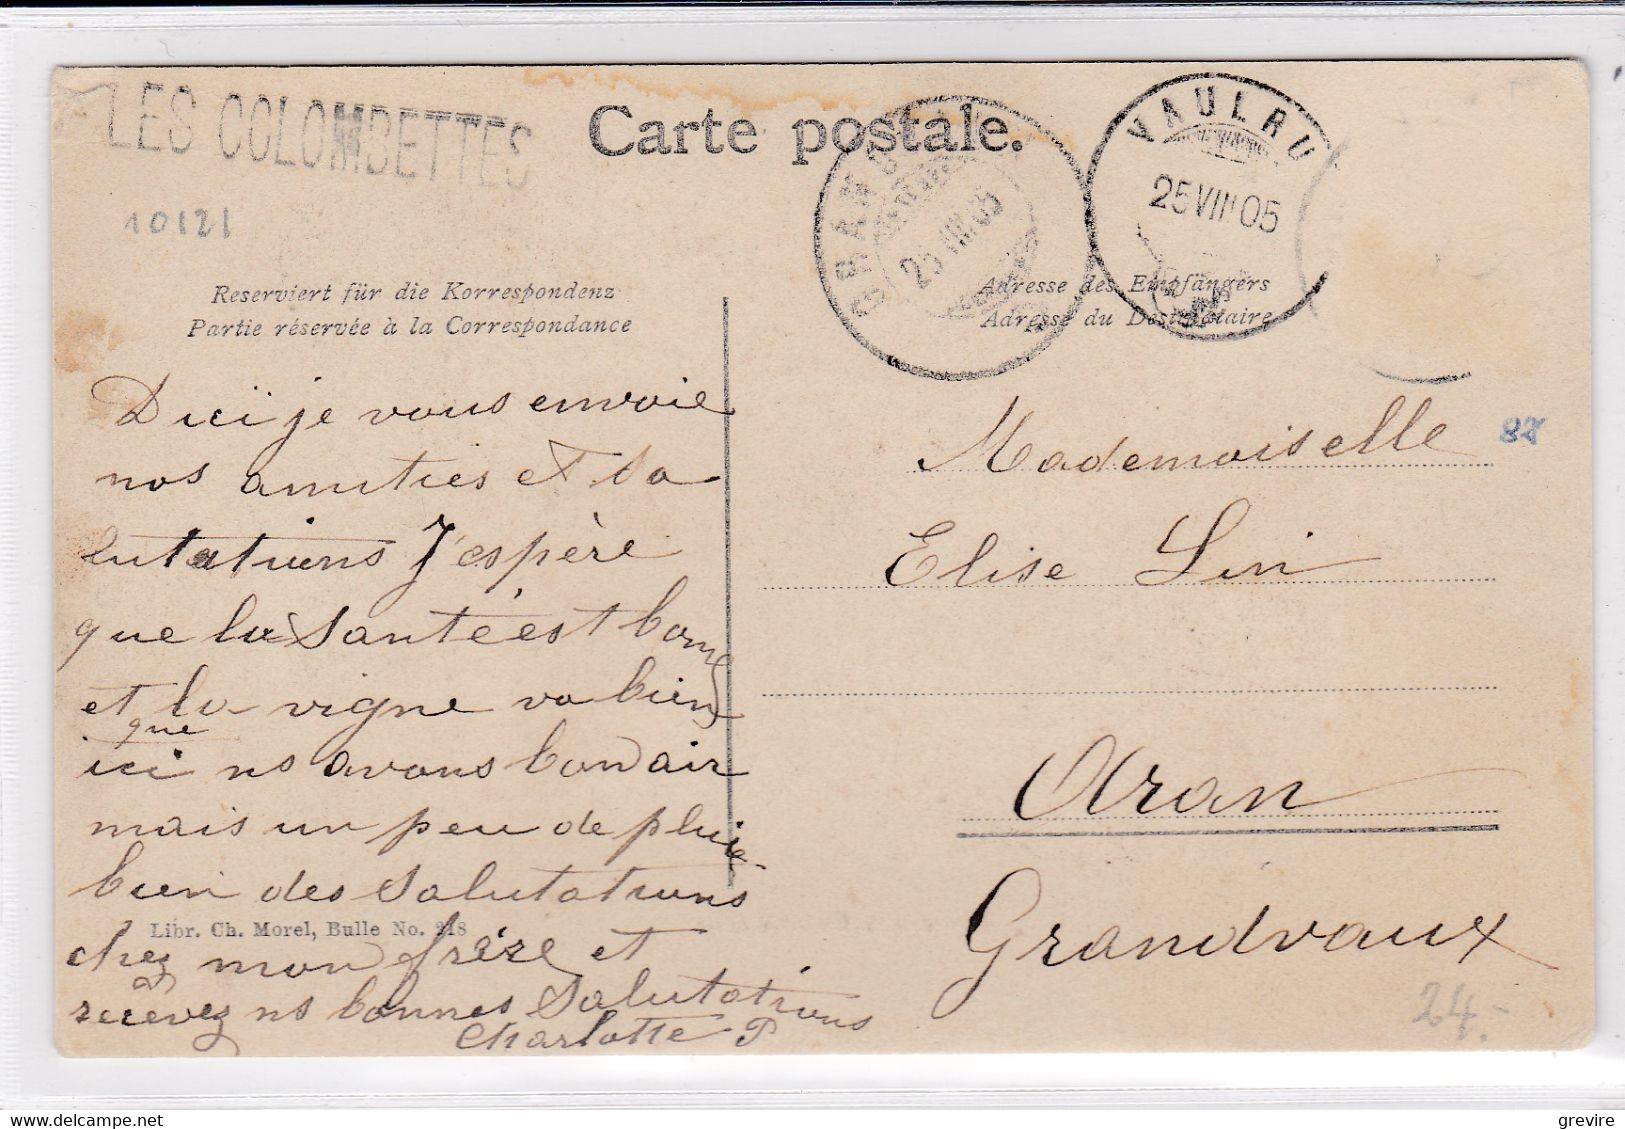 LES COLOMBETTES
10121
Carte postale.
VAULRU
25 VIII 05
GRAND
25 VIII 05
Reserviert für die Korrespondenz
Partie réservée à la Correspondance
Adresse des Empfängers
Adresse du Destinataire
D'ici je vous envoie
nos amitiés et sa
lutations J'espère
que la Santé est bonne
et la vigne va bien
que
ici ns avons bon air
mais un peu de pluie
bien des Salutations
chez mon frère et
recevez ns bonnes Salutations
Charlotte P
Libr. Ch. Morel, Bulle No. 218
Mademoiselle
88
Elise Lin
Aran
Grandvaux
24.-
delcampe.net
grevire